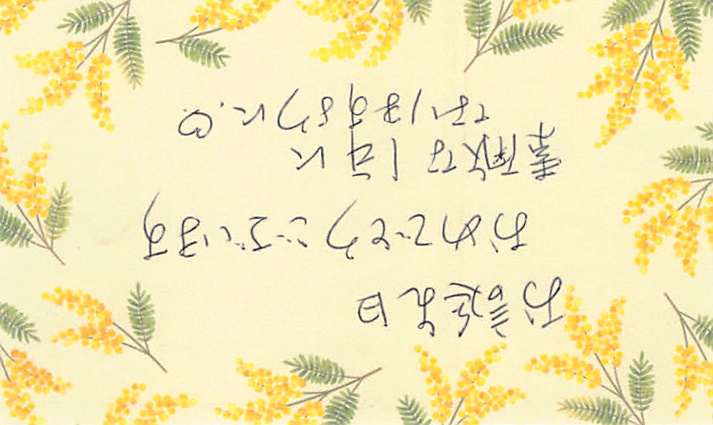 お誕生日
おめでとうございます
素敵な1日に
なりますように